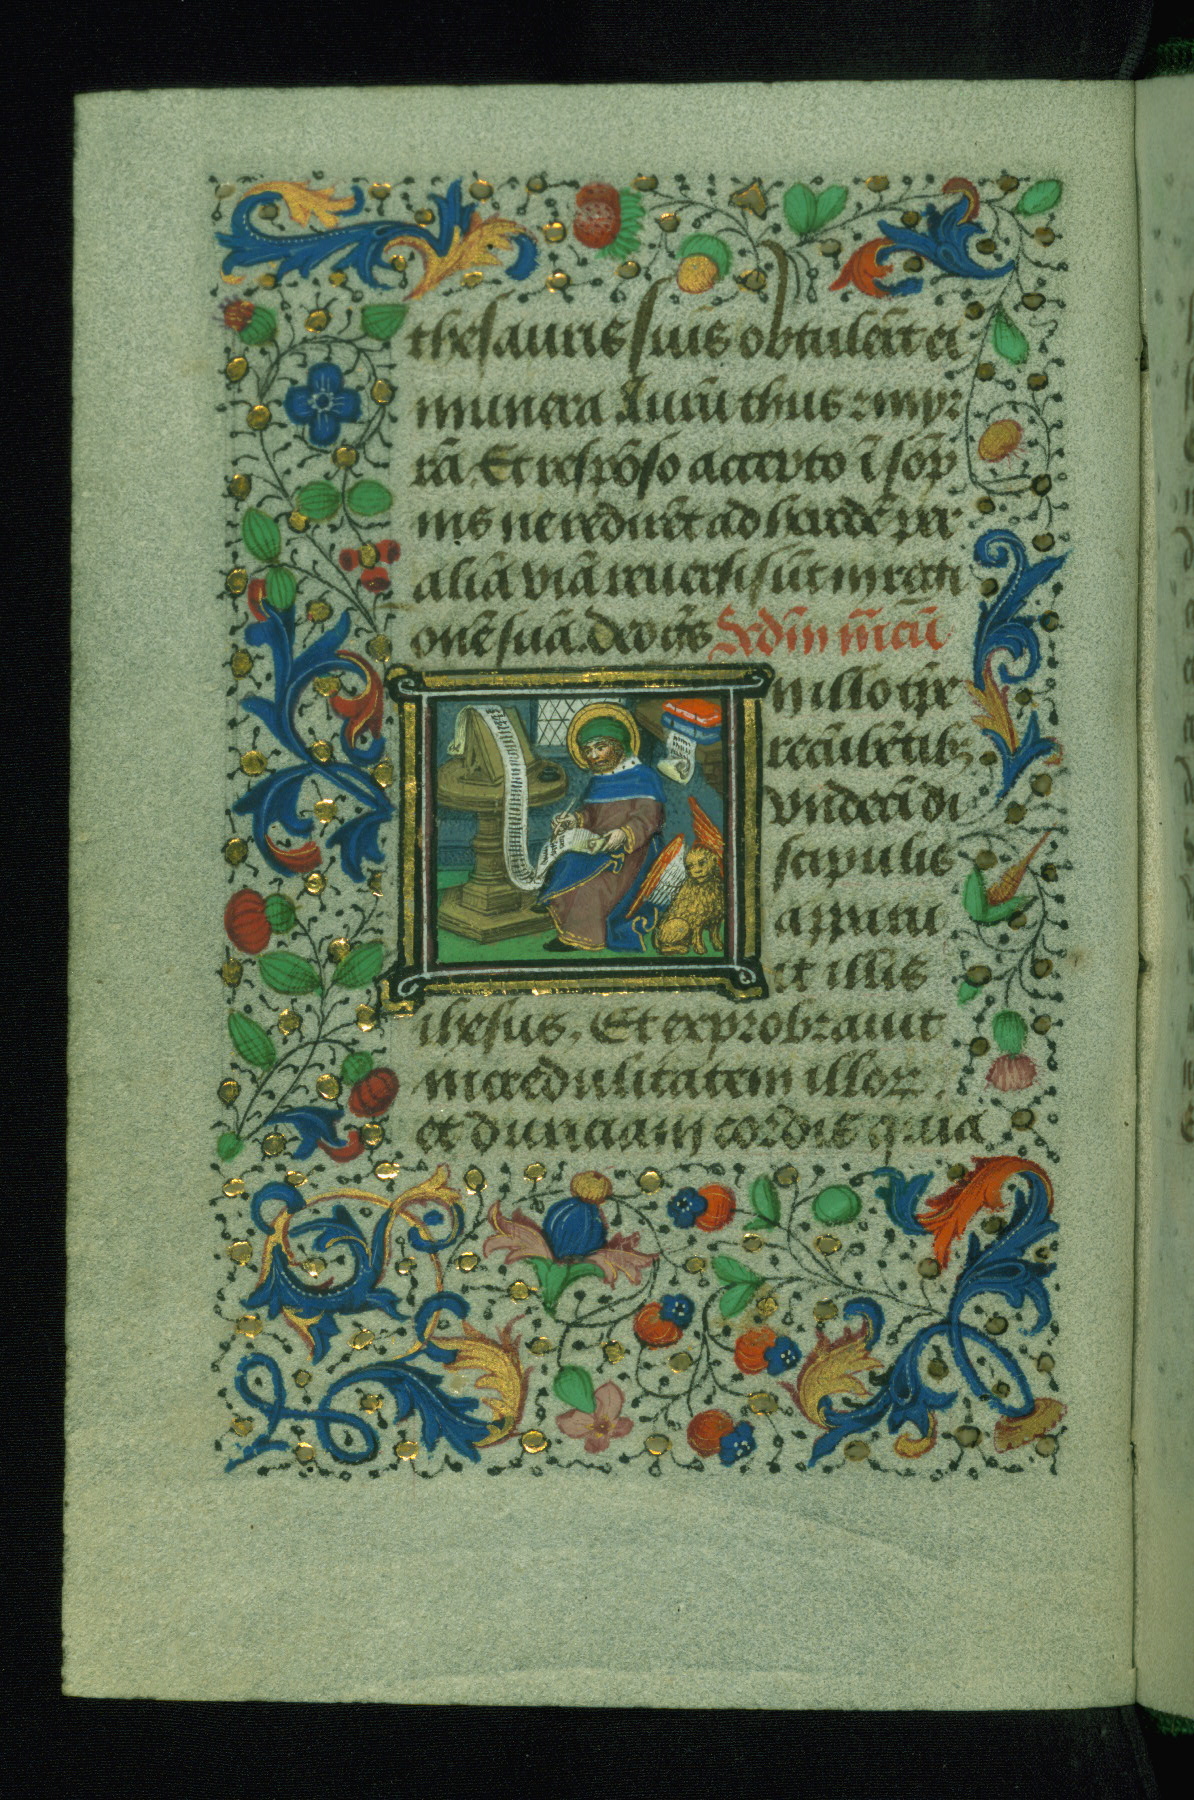 thesauris suis obtuler̄t ei
munera Aurū thus ⁊ myr
rā. Et respōso accepto ī sōp
nis ne redirēt ad herodē per
aliā viā reuersi sūt in regi
onē suā. deo gr̄s Sedm̄ m̄cū
n illo tp̄r
recūbētibꝫ
vndecī di
scipulis
apparu
it illis
ihesus. Et exprobrauit
incredulitatem illoꝝ.
et duriciam cordis quia